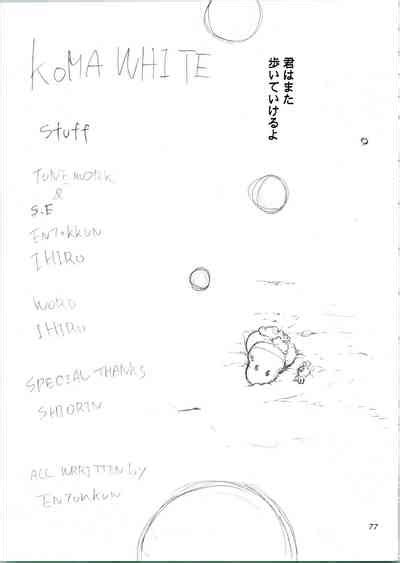 KOMA WHITE
君はまた
歩いていけるよ
Stuff
TUNE MONK
&
S.E
ENZOKKUN
IHIRO
WORD
IHIRO
SPECIAL THANKS
SHIORIN
ALL WRITTEN by
ENZOKKUN
77